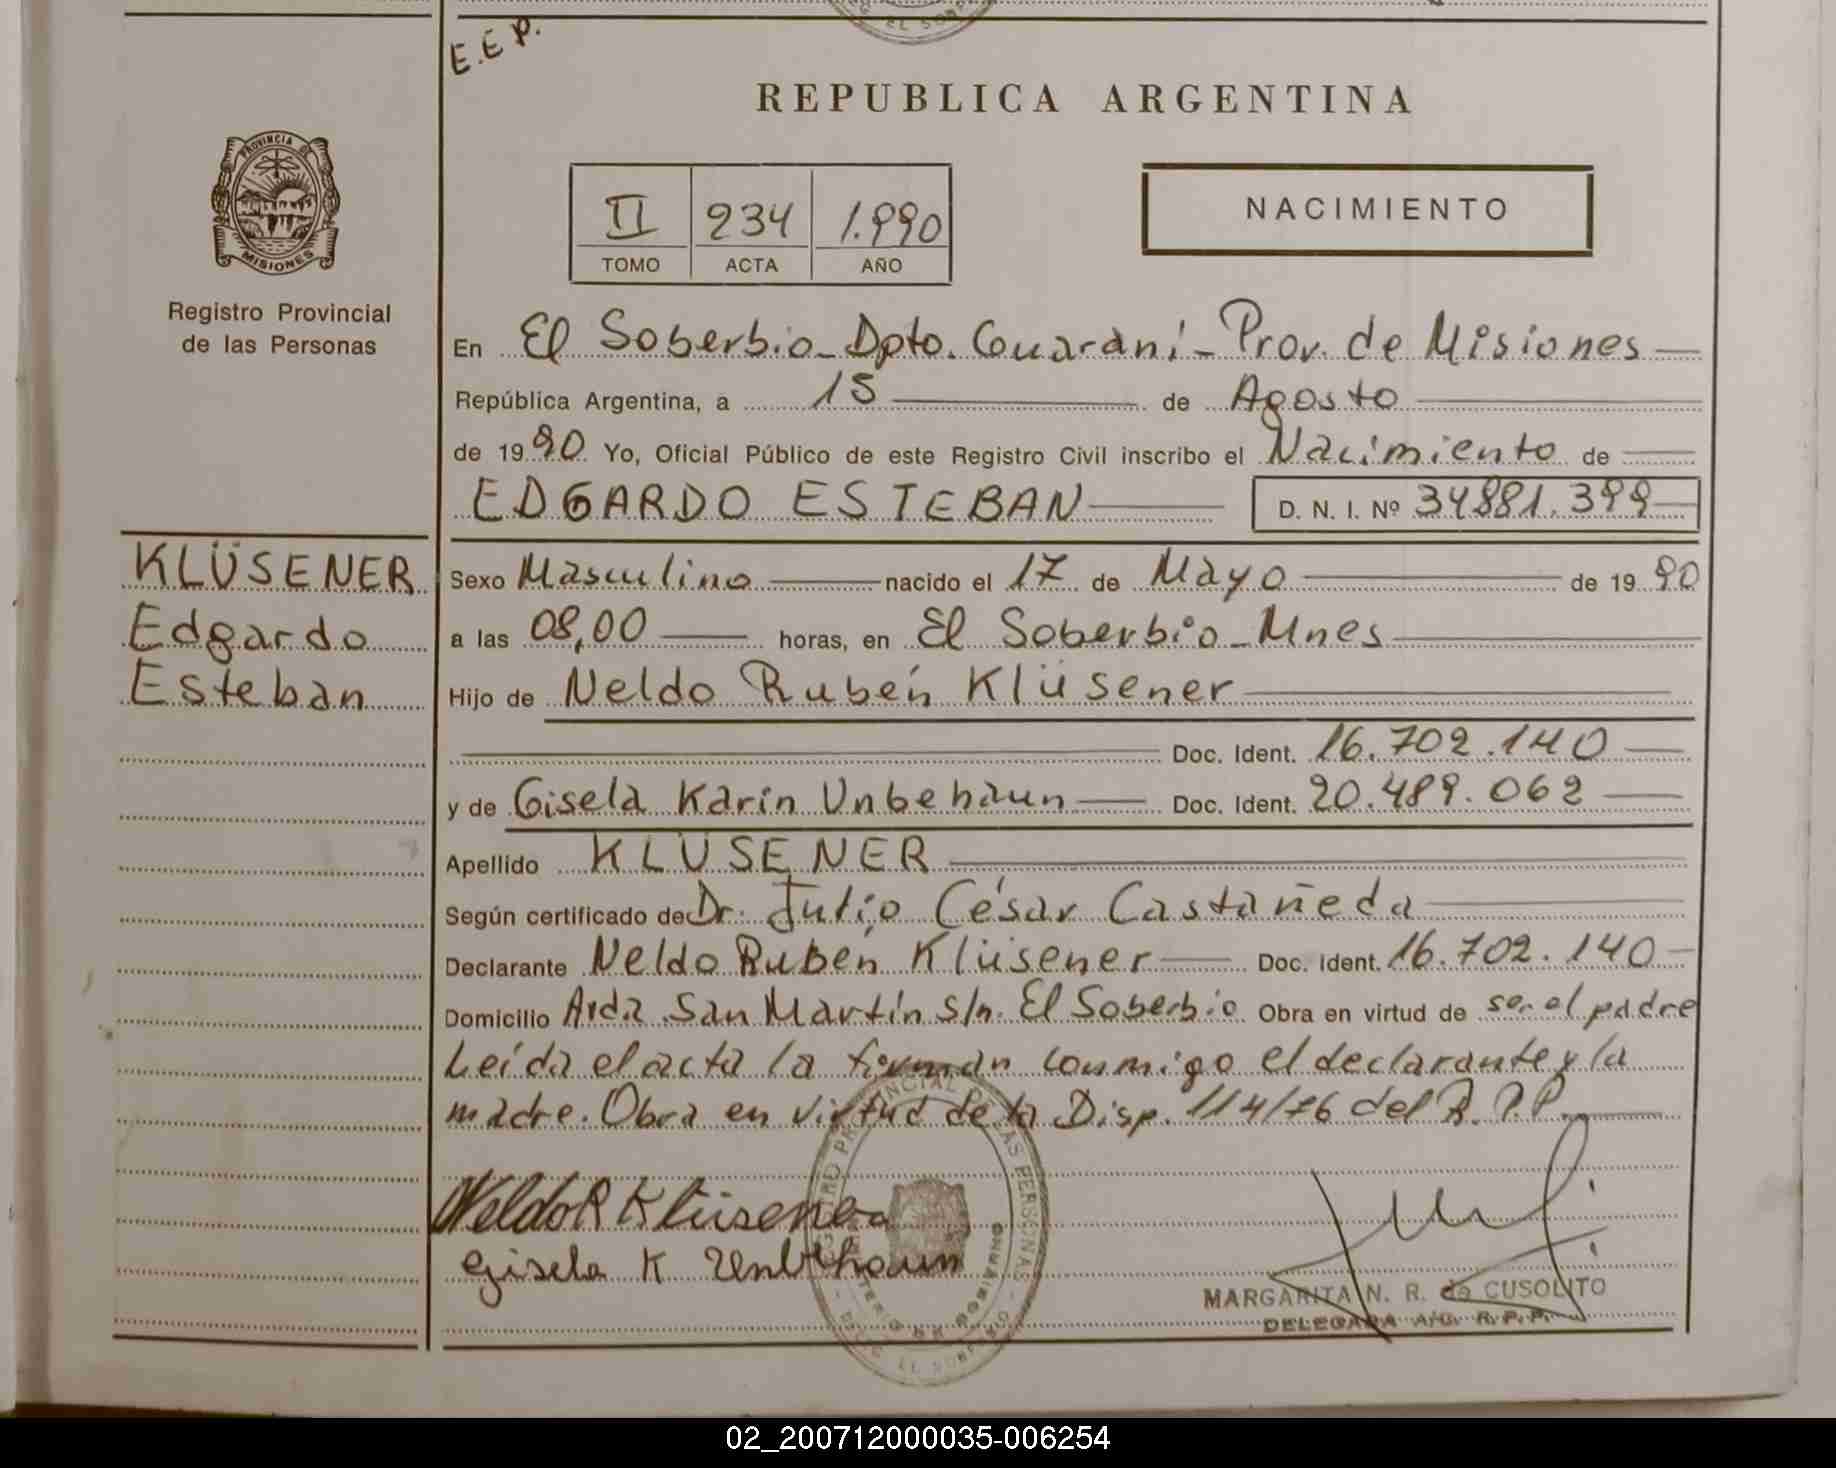 E.E.P.
REPUBLICA ARGENTINA
PROVINCIA DE
MISIONES
Registro Provincial
de las Personas
II 234 1.990
TOMO ACTA AÑO
NACIMIENTO
En El Soberbio - Dpto. Guaraní - Prov. de Misiones
República Argentina, a 15 de Agosto
de 1990 Yo, Oficial Público de este Registro Civil inscribo el Nacimiento de
EDGARDO ESTEBAN D. N. I. Nº 34881.399
KLÜSENER
Edgardo
Esteban
Sexo Masculino nacido el 17 de Mayo de 1990
a las 08,00 horas, en El Soberbio - Mnes
Hijo de Neldo Rubén Klüsener
Doc. Ident. 16.702.140
y de Gisela Karin Unbehaun Doc. Ident. 20.489.062
Apellido KLÜSENER
Según certificado de Dr. Julio César Castañeda
Declarante Neldo Rubén Klüsener Doc. Ident. 16.702.140
Domicilio Avda. San Martín s/n. El Soberbio Obra en virtud de ser el padre
Leída el acta la firman conmigo el declarante y la
madre. Obra en virtud de la Disp. 114/76 del R.P.P.
Neldo R Klüsener
Gisela K Unbehaun
MARGARITA N. R. de CUSOLITO
DELEGADA A/C. R.P.P.
02_200712000035-006254